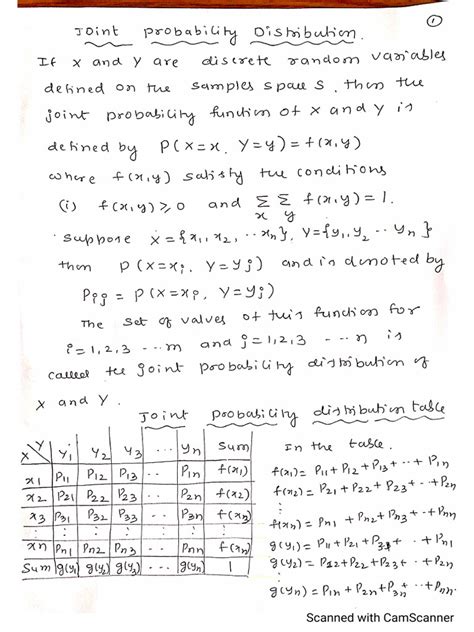 ①
Joint probability Distribution.
If X and Y are discrete random variables
defined on the samples space S, then the
joint probability function of X and Y is
defined by P(X=x, Y=y) = f(x,y)
where f(x,y) satisfy the conditions
(i) f(x,y) ≥ 0 and Σ Σ f(x,y) = 1.
x y
suppose X = {x1, x2, ..xn}, Y = {y1, y2 .. yn}
then P(X=xi, Y=yj) and is denoted by
Pij = P(X=xi, Y=yj)
The set of values of this function for
i=1,2,3 ...m and j=1,2,3 ...n is
called the joint probability distribution of
X and Y.
Joint probability distribution table
X\Y y1 y2 y3 .. yn Sum
x1 P11 P12 P13 .. P1n f(x1)
x2 P21 P22 P23 .. P2n f(x2)
x3 P31 P32 P33 .. P3n f(x3)
: : : : : : :
xn Pn1 Pn2 Pn3 .. Pnn f(xn)
Sum g(y1) g(y2) g(y3) .. g(yn) 1
In the table.
f(x1) = P11 + P12 + P13 + .. + P1n
f(x2) = P21 + P22 + P23 + .. + P2n
:
f(xn) = Pn1 + Pn2 + Pn3 + .. + Pnn
g(y1) = P11 + P21 + P31 + .. + Pn1
g(y2) = P12 + P22 + P23 + .. + Pn2
:
g(yn) = P1n + P2n + P3n + .. + Pnn.
Scanned with CamScanner